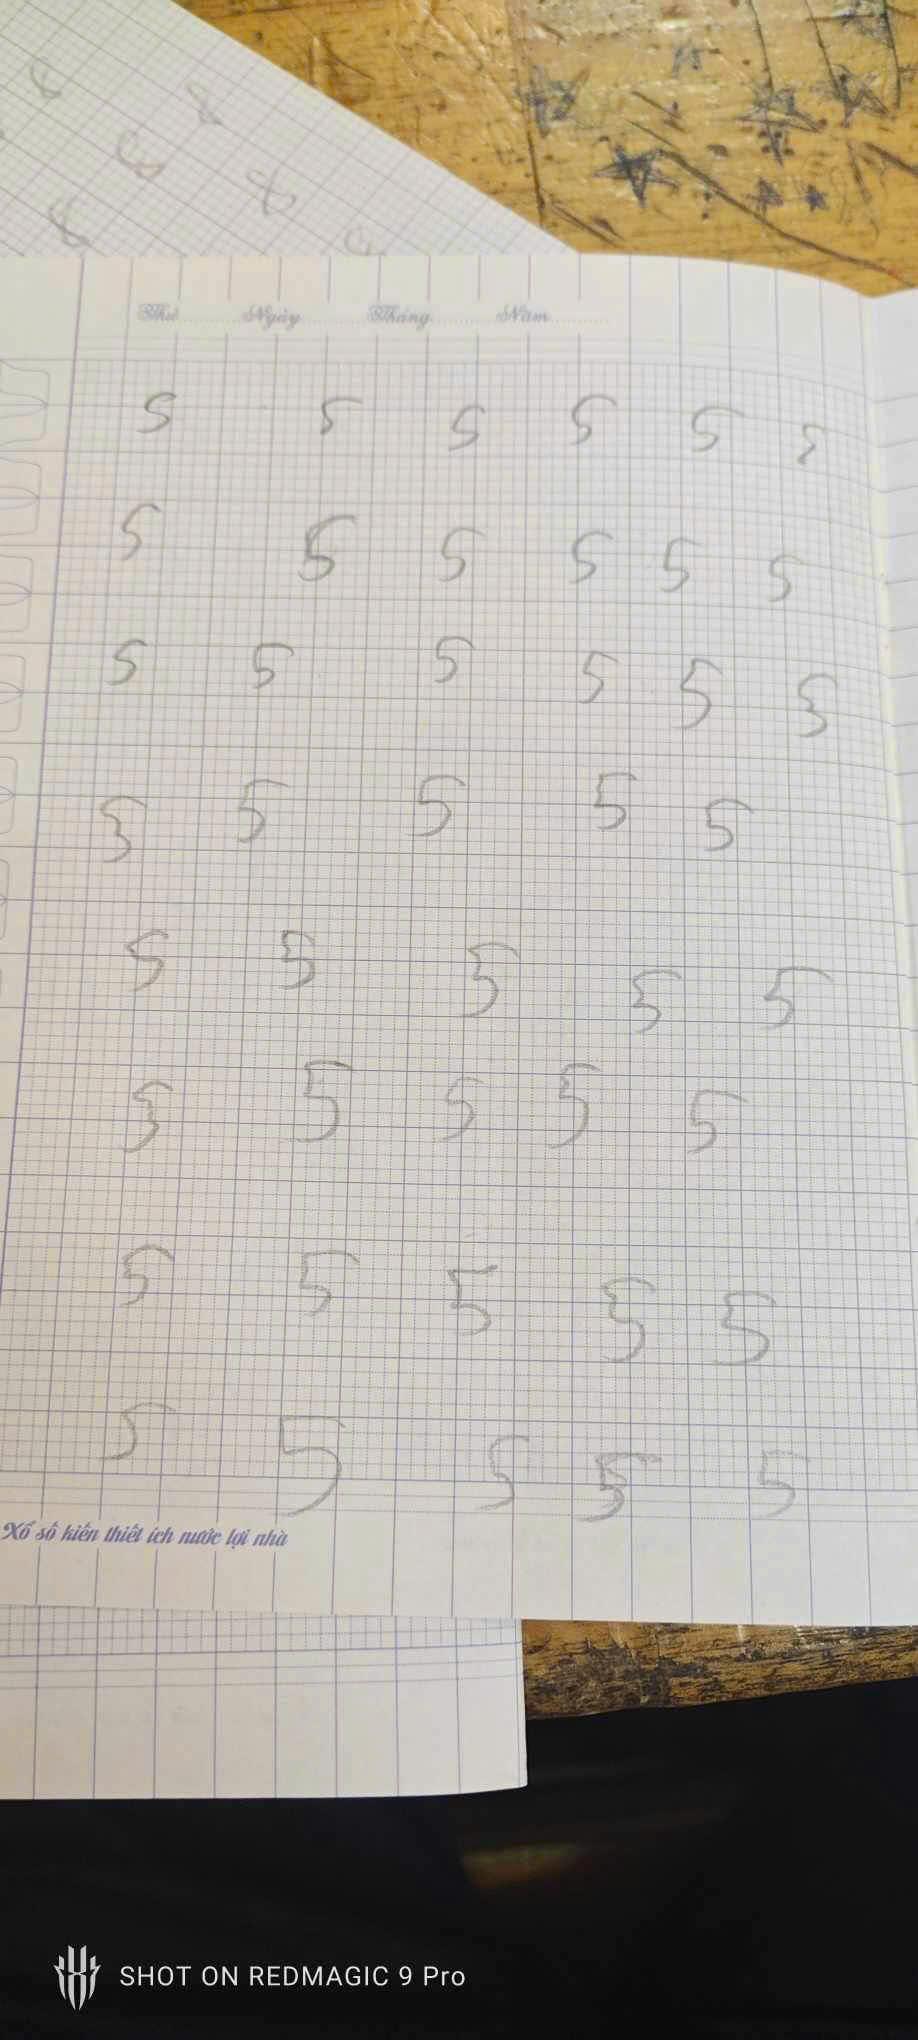 8 8
8 8
8
Thứ Ngày Tháng Năm
5 5 5 5 5 5
5 5 5 5 5 5
5 5 5 5 5 5
5 5 5 5 5
5 5 5 5 5
5 5 5 5 5
5 5 5 5 5
5 5 5 5 5
Xổ số kiến thiết ích nước lợi nhà
SHOT ON REDMAGIC 9 Pro